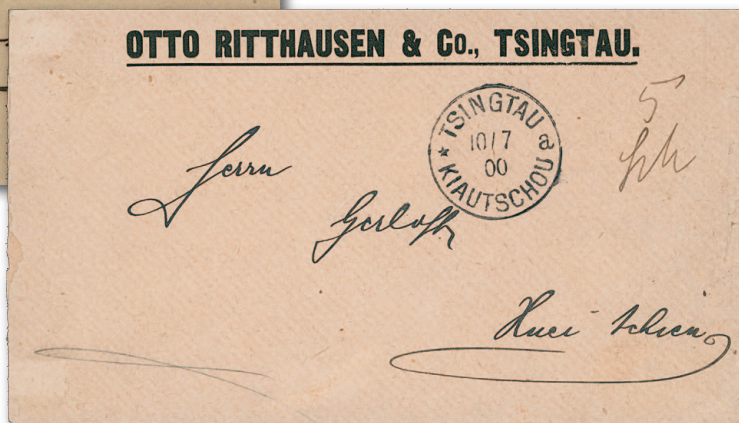 OTTO RITTHAUSEN & Co., TSINGTAU.
TSINGTAU a
10/7
00
* KIAUTSCHOU
5
Herrn
Gerloff,
Huei tschien